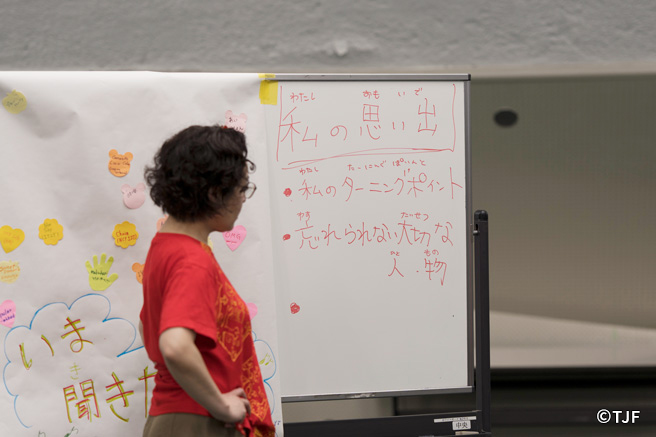 わたし おも いで
私の思い出
わたし たーにんぐ ぽいんと
私のターニングポイント
わす たいせつ
忘れられない大切な
ひと もの
人・物
いま
き
聞きた
中央
©TJF